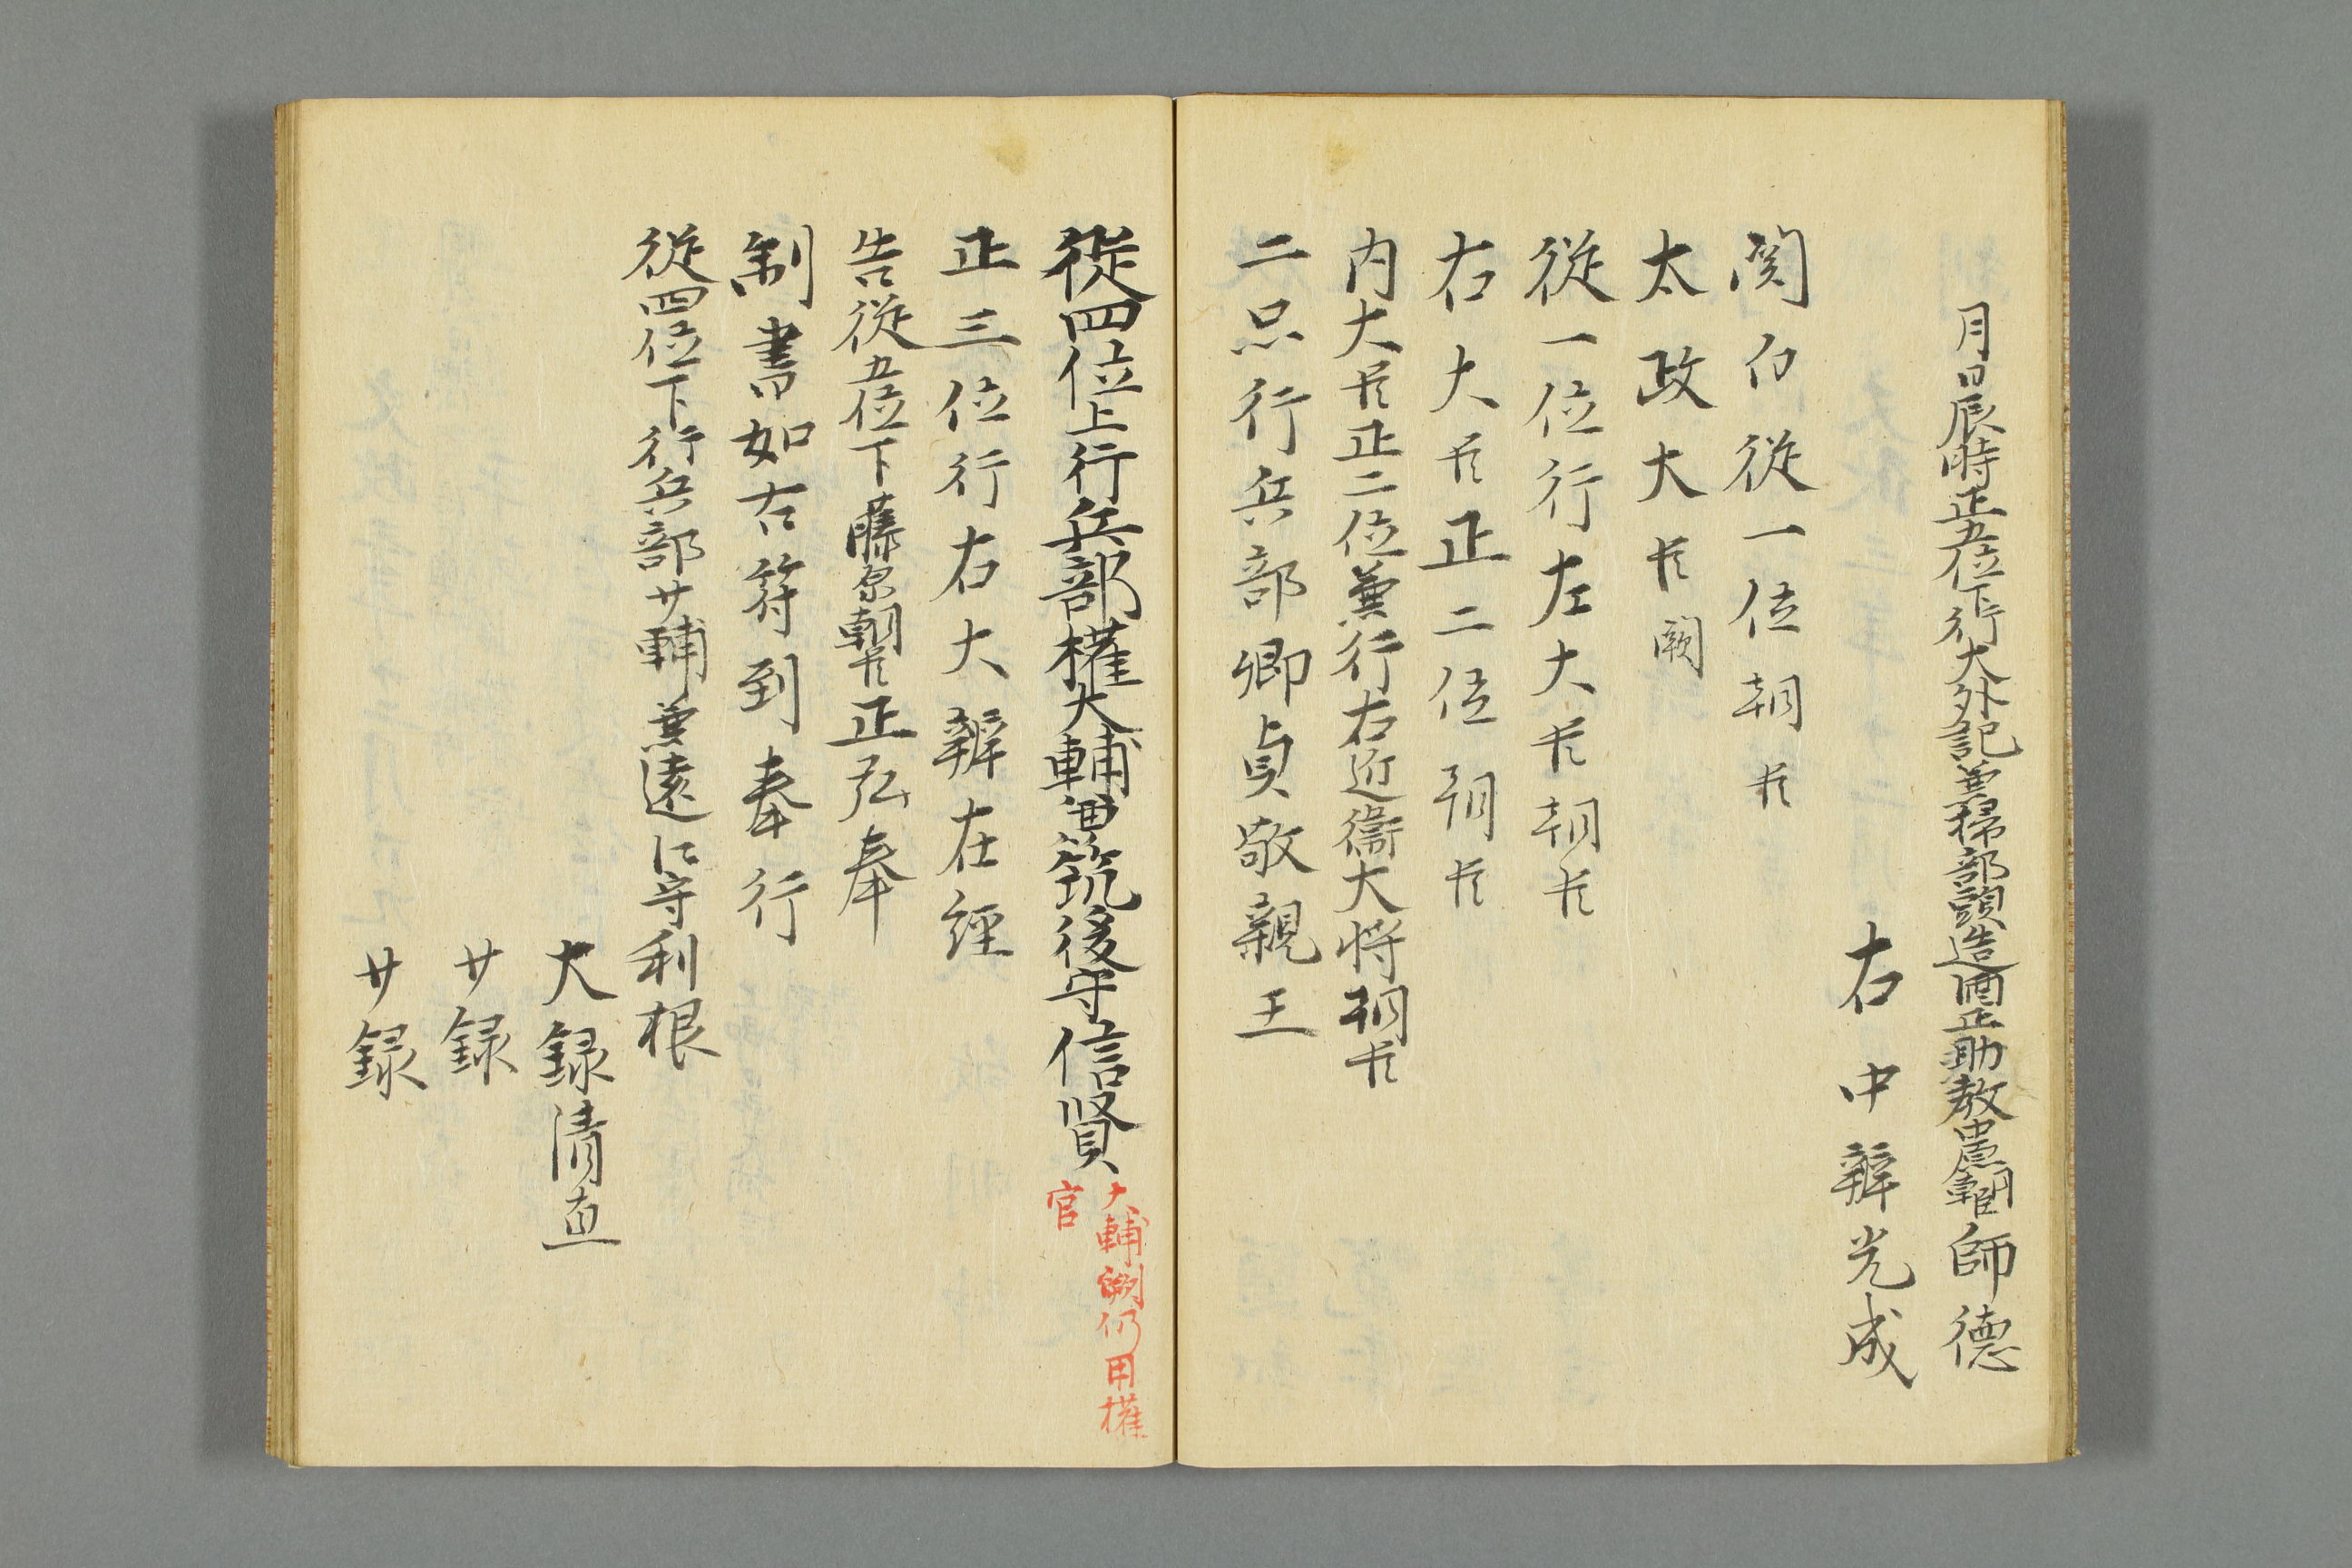 月日辰時正五位下行大外記兼掃部頭造酒正助教中原朝臣師德
右中辨光成
関白従一位朝臣
太政大臣闕
従一位行左大臣朝臣
右大臣正二位朝臣
内大臣正二位兼行右近衞大将朝臣
二品行兵部卿貞敬親王
従四位上行兵部權大輔兼筑後守信賢
大輔闕仍用權
官
正三位行右大辨在經
告従五位下藤原朝臣正弘奉
制書如右符到奉行
従四位下行兵部少輔兼遠江守利根
大録清直
少録
少録